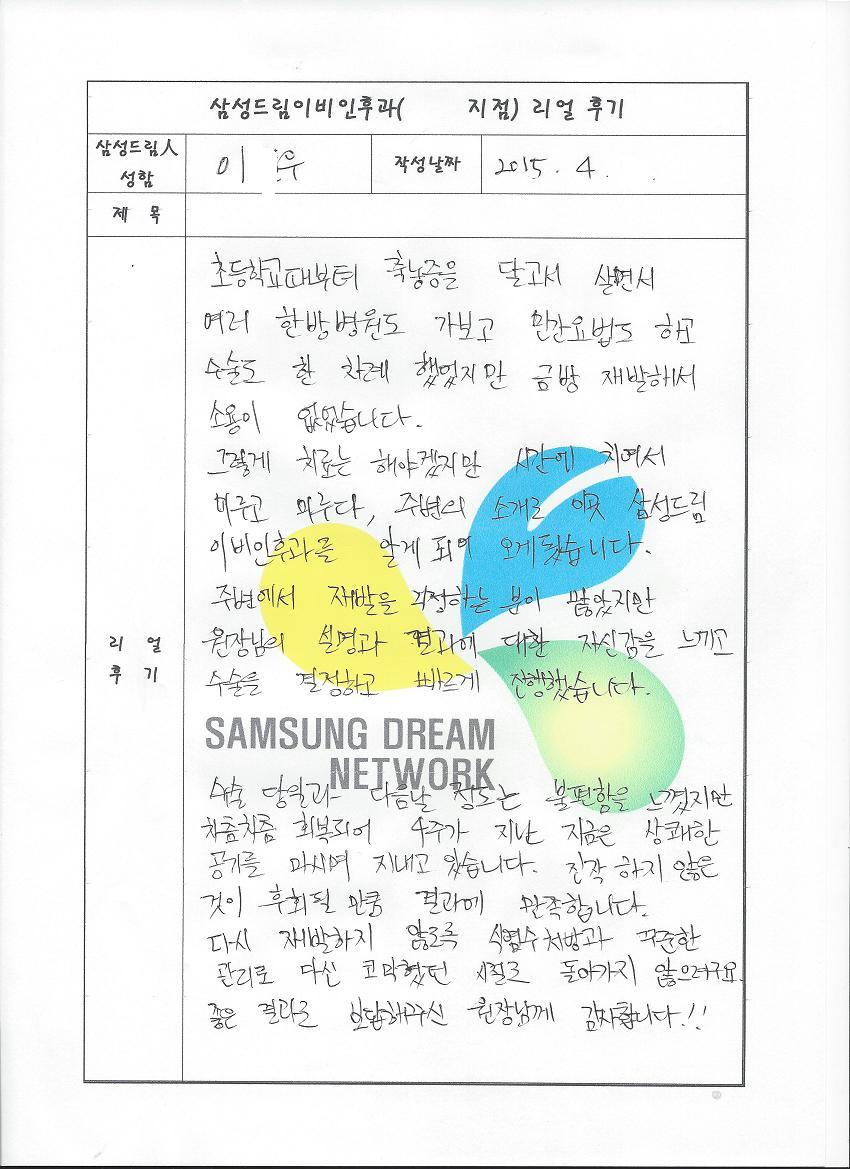 삼성드림이비인후과( 지점) 리얼 후기
삼성드림人
성함
이 우
작성날짜
2015. 4. .
제 목
초등학교때부터 축농증을 달고서 살면서
여러 한방병원도 가보고 민간요법도 하고
수술도 한 차례 했었지만 금방 재발해서
소용이 없었습니다.
그렇게 치료는 해야겠지만 시간에 치여서
미루고 미루다, 주변의 소개로 이곳 삼성드림
이비인후과를 알게 되어 오게됐습니다.
주변에서 재발을 걱정하는 분이 많았지만
원장님의 설명과 결과에 대한 자신감을 느끼고
수술을 결정하고 빠르게 진행했습니다.
리 얼
후 기
SAMSUNG DREAM
NETWORK
수술 당일과 다음날 정도는 불편함을 느꼈지만
차츰차츰 회복되어 4주가 지난 지금은 상쾌한
공기를 마시며 지내고 있습니다. 진작 하지 않은
것이 후회될 만큼 결과에 만족합니다.
다시 재발하지 않도록 식염수처방과 꾸준한
관리로 다신 코막혔던 시절로 돌아가지 않으려구요.
좋은 결과로 보답해주신 원장님께 감사합니다.!!